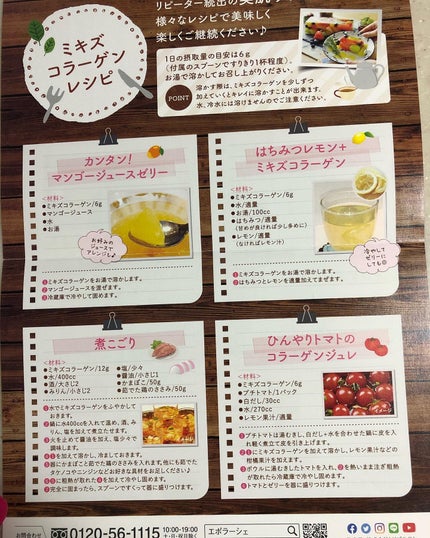 リピーター続出の美肌
様々なレシピで美味しく
楽しくご継続ください♪
ミキズ
コラーゲン
レシピ
1日の摂取量の目安は6g
(付属のスプーンですりきり1杯程度)。
お湯で溶かしてお召し上がりください。
POINT
溶かす際は、ミキズコラーゲンを少しずつ
加えていくとキレイに溶かすことが出来ます。
水、冷水には溶けませんのでご注意ください。
カンタン!
マンゴージュースゼリー
<材料>
●ミキズコラーゲン/6g
●マンゴージュース
●水
●お湯
お好みの
ジュースで
アレンジも♪
❶ミキズコラーゲンをお湯で溶かします。
❷マンゴージュースを混ぜます。
❸冷蔵庫で冷やして固めます。
はちみつレモン+
ミキズコラーゲン
<材料>
●ミキズコラーゲン/6g
●水/適量
●お湯/100cc
●はちみつ/適量
(甘めが良ければ少し多めに)
●レモン/適量
(なければレモン汁)
冷やして
ゼリーに
しても◎
❶ミキズコラーゲンをお湯で溶かします。
❷はちみつとレモンを適量加えてまぜます。
煮こごり
<材料>
●ミキズコラーゲン/12g
●水/400cc
●酒/大さじ2
●みりん/小さじ1
●塩/少々
●醤油/小さじ1
●かまぼこ/50g
●茹でた鶏のささみ/50g
❶水でミキズコラーゲンをふやかして
おきます。
❷鍋に水400ccを入れて温め、酒、みり
ん、塩を加えて煮立たせます。
❸火を止めて醤油を加え、塩少々で
調味します。
❹❸に❶を加えて溶かし、冷ましておきます。
❺器にかまぼこと茹でた鶏のささみを入れます。他にも茹でた
タケノコやニンジンなどお好きな具材を具材をお足しください♪
❻❺に、粗熱が取れた❹を加えて冷やし固めます。
❼完全に固まったら、スプーンですくって器に盛りつけます。
ひんやりトマトの
コラーゲンジュレ
<材料>
●ミキズコラーゲン/6g
●プチトマト/1パック
●白だし/30cc
●水/270cc
●レモン果汁/適量
❶プチトマトは湯むきし、白だし+水を合わせた鍋に皮を入
れ軽く煮立て皮を引き上げます。
❷❶にミキズコラーゲンを加えて溶かし、レモン果汁などの
柑橘果汁を加えます。
❸ボウルに湯むきしたトマトを入れ、❷を熱いまま注ぎ粗熱
が取れたら冷蔵庫で冷やし固めます。
❹トマトとゼリーを器に盛りつけます。
お問合わせ
0120-56-1115
10:00-19:00
土・日・祝日除く
エポラーシェ